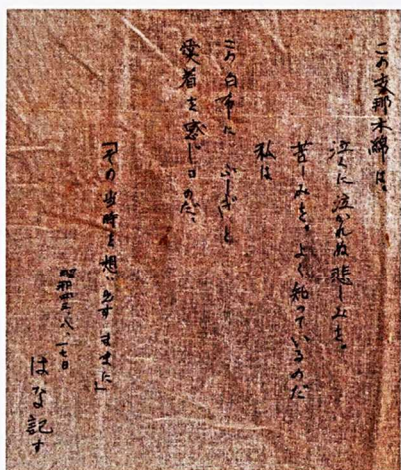 この支那木綿は、
泣くに泣かれぬ悲しみを。
苦しみを。よく知っているのだ
私は
この白布に。ふしぎと
愛着を感じるのだ。
「その当時を想い出すままに」
昭和 八、一七日
はな記す